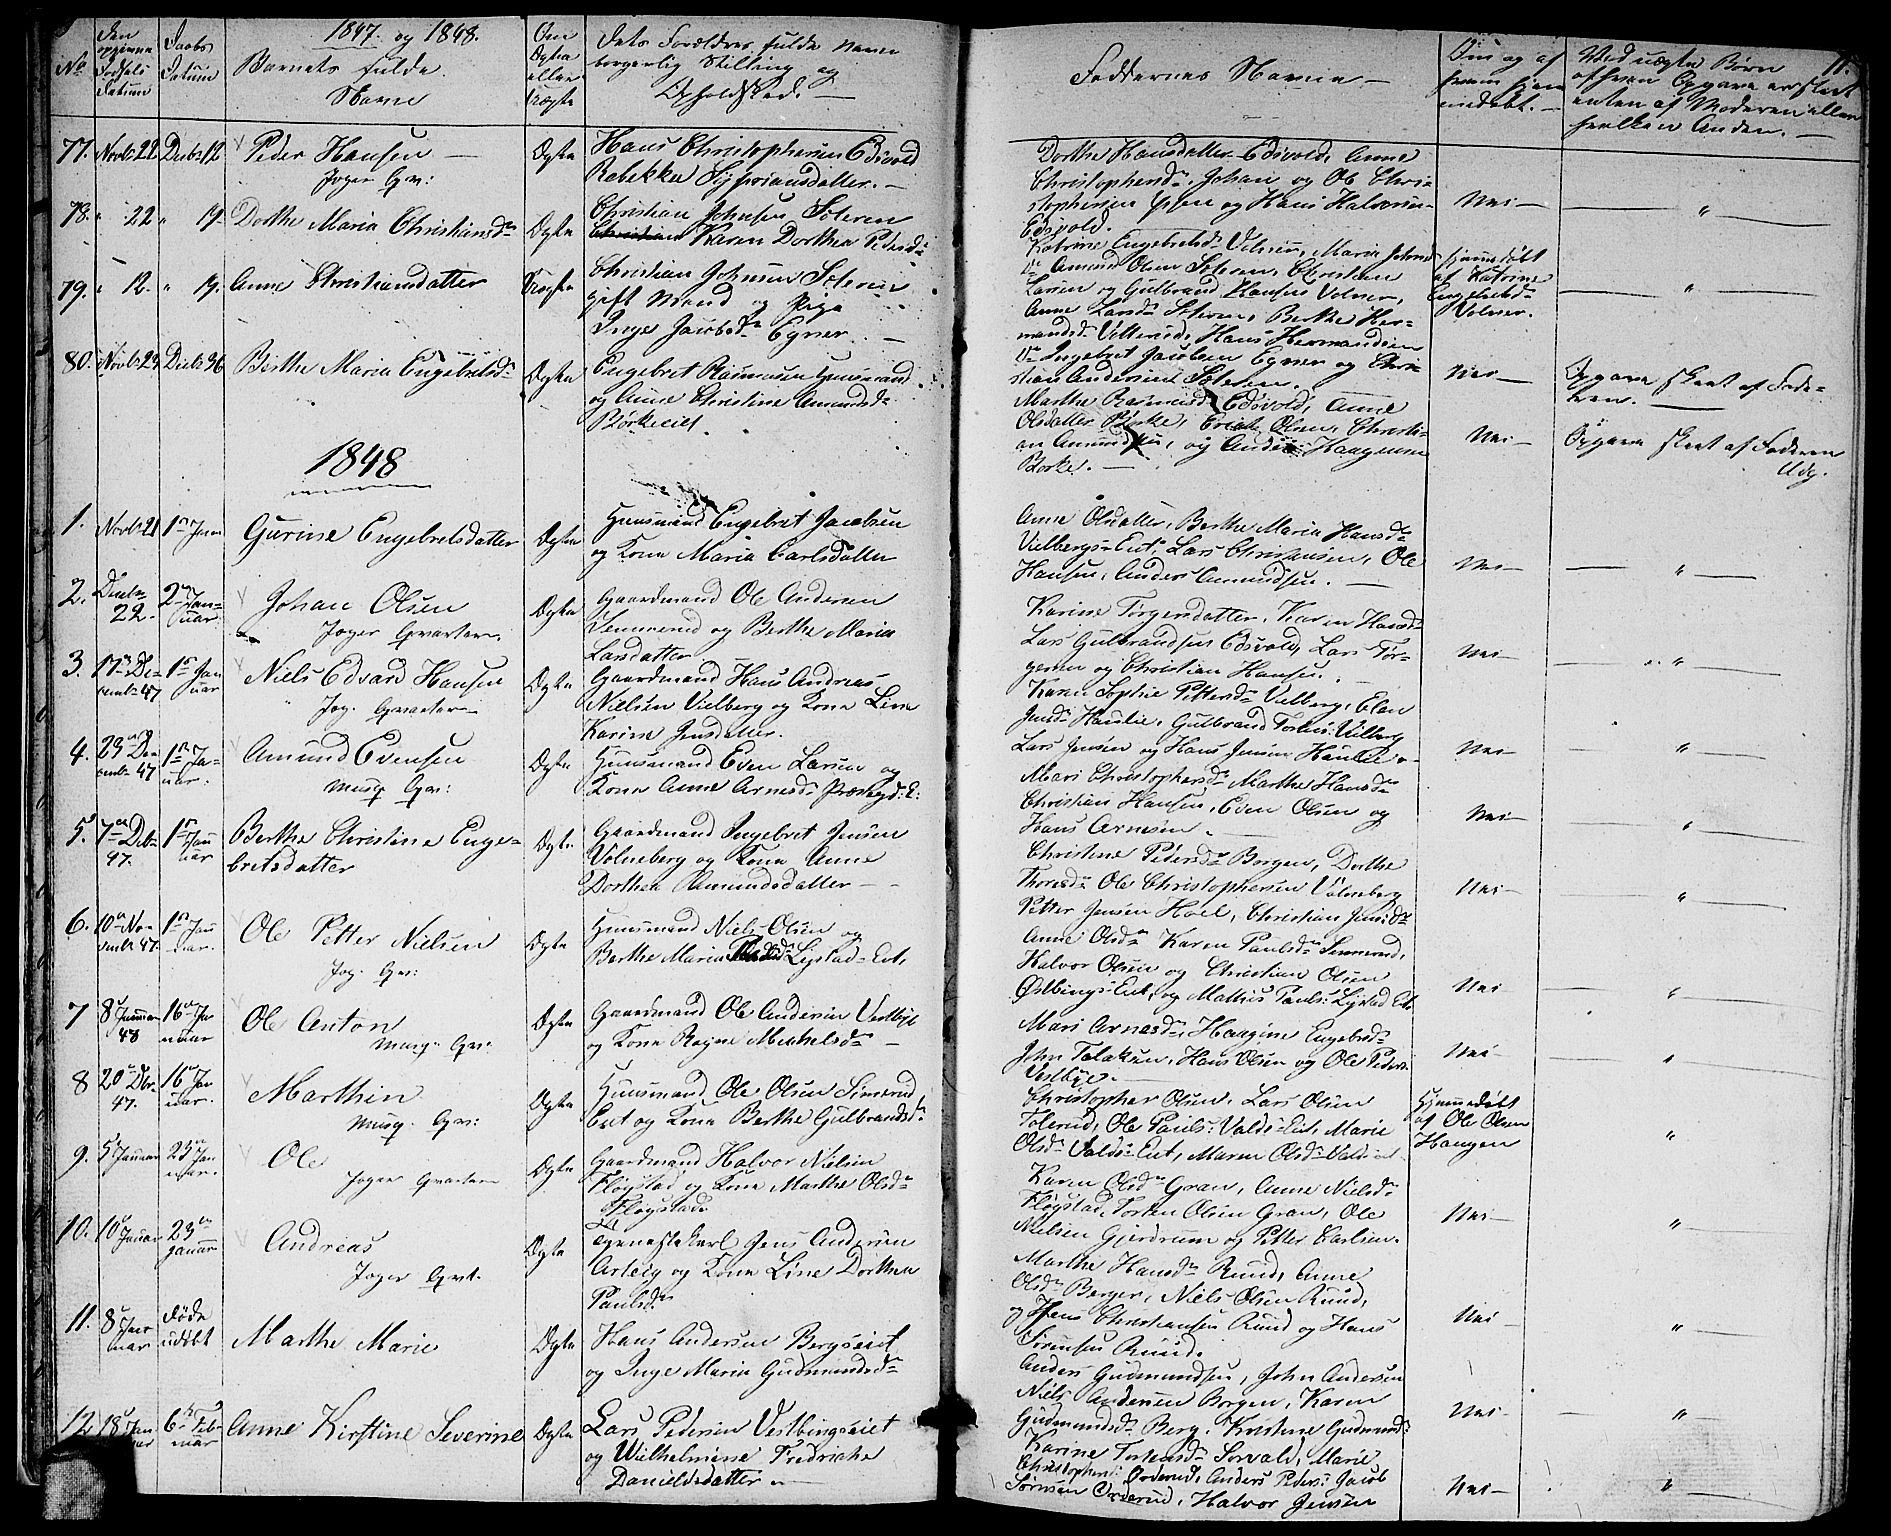 1847. og 1848.
No
Den opgivne Fødsels Datum
Daabs Datum
Barnets fulde Navne
Om Ægte eller Uægte
Dets Forældres fulde Navne borgerlig Stilling og Opholdsted.
Faddernes Navne
Om og af hvem hjemmedøbt.
Ved uægte Børn af hvem Opgave er skeet enten af Moderen eller hvilken Anden.
77. Novbr 22 Decbr 12 Peder Hansen Ægte
Jøger Qv:
Hans Christophersen Edsvold
Rebekka Sypriansdatter.
Dorthe Hansdatter Edsvold, Anne
Christophersdr. Johan og Ole Chri-
stophersen ... og Hans Halvorsen
Edsvold.
Nei
78. " 22 " 19. Dorthe Maria Christiansdr Ægte
Christian Johnsen Sæteren
Karen Dorthea Pedersdr
Katrine Engebretsdr Volner, Maria Johns-
dr Amund Olsen Sæteren, Christian
Larsen og Gulbrand Hansen Volner,
Hjemmedøbt
af Katrine
Engebretsdr
Volner.
79. " 12. " 19. Anne Christiansdatter Uægte
Christian Johnsen Sæteren
gift Mand og Pige
Inge Jacobsdr Egner
Anne Larsdr Sæteren, Berthe Her-
mandsdr Vetterud, Hans Hermandsen
Ingebret Jacobsen Egner og Chri-
stian Andersen Sæteren.
Nei
Opgave skeet af Fade-
ren.
80. Novbr 23 Decbr 26 Berthe Maria Engebretsdr Ægte
Engebret Rasmusen Huusmand
og Anne Christine Amundsdr
Børkeeiet
Marthe Rasmusdr Edsvold, Anne
Olsdatter Børke, Erik Olsen, Christi-
an Amundsen, og Anders Haagensen
Børke.
Nei
Opgave skeet af Faderen
Udg.
1848
1. Novbr 21 1ste Janr Gurine Engebretsdatter Ægte
Huusmand Engebret Jacobsen
og Kone Maria Carlsdatter
Anne Olsdatter, Berthe Maria Hansdr
Vielbergs-Eiet, Lars Christiansen, Ole
Hansen, Anders Amundsen.
Nei
2. Decbr 22. 2den Januar Johan Olsen Ægte
Jøger Qvarteer.
Gaardmand Ole Andersen
Sennerud og Berthe Maria
Larsdatter
Karine Tørgersdatter, Karen Hansdr
Lars Gulbrandsen Edsvold, Lars Tør-
gersen og Christian Hansen.
Nei
3. 17de Decembr 47 1ste Januar Niels Edvard Hansen Ægte
Jøg: Qvarteer
Gaardmand Hans Andreas
Nielsen Vielberg og Kone Line
Karine Jensdatter.
Karen Sophie Pettersdr Vielberg, Elen
Jensdr Haulie, Gulbrand Tostens: Vielberg
Lars Jensen og Hans Jensen Haulie
Nei
4. 23de Decembr 47 1ste Januar. Amund Evensen Ægte
Musq. Qv:
Huusmand Even Larsen og
Kone Anne Arnesdr Præstegd: E:
Mari Christophersdr Marthe Hansdr
Christian Hansen, Even Olsen og
Hans Arnesen.
Nei
5. 7de Decbr 47. 1ste Januar Berthe Christine Enge-
bretsdatter Ægte
Gaardmand Ingebret Jensen
Volneberg og Kone Anne
Dorthea Amundsdatter
Christine Pedersdr Borgen, Dorthe
Thoresdr Ole Christophersen Volneberg
Petter Jensen Hoel, Christian Jens:
Nei
6. 10de Novembr 47. 1ste Januar. Ole Petter Nielsen Ægte
Jøg: Qv:
Huusmand Niels Olsen og
Berthe Maria ... Lystad-Eiet,
Anne Olsdr Karen Paulsdr Sennerud,
Halvor Olsen og Christian Olsen
Østbings-Eiet, og Mathis Pauls: Lystad Eiet
Nei
7 8de Januar 48 16de Januar Ole Anton Ægte
Musq: Qv:
Gaardmand Ole Andersen Vestbye
og Kone Ragne Mickelsdr
Mari Arnesdr, Haagine Engebretsdr
John Tolaksen, Hans Olsen og Ole Peders:
Vestbye.
Nei
8 20de Decbr 47. 16de Januar. Marthin Ægte
Musq. Qv:
Huusmand Ole Olsen Simerud
Eiet og Kone Berthe Gulbrandsdr
Christopher Olsen, Lars Olsen
Tolerud, Ole Pauls: Valds-Eiet, Marie
Olsdr Valds-Eiet, Maren Olsdr Valdseiet.
Hjemmedøbt
af Ole Olsen
Haugen
9. 5te Januar 23de Januar. Ole Ægte
Jøger Qvarteer
Gaardmand Halvor Nielsen
Fløgstad og Kone Marthe Olsdr
Fløgstad
Karen Olsdr Gran, Anne Nielsdr
Fløgstad, Torsten Olsen Gran, Ole
Nielsen Gjerdrum og Petter Carlsen.
Nei
10. 10de Januar 23de Januar Andreas Ægte
Jøger Qvt.
Tjenestekarl Jens Andersen
Asleig og Kone Line Dorthea
Paulsdr
Marthe Hansdr Ruud, Anne
Olsdr Berger, Niels Olsen Ruud,
og Hans Christiansen Ruud og Hans
Sørensen Ruud.
Nei
11. 8de Januar Døde udøbt Marthe Marie Ægte
Hans Andersen Bergseiet
og Inge Maria Gudmundsdr
Anders Gudmundsen, John Andersen
Niels Andersen Borgen, Karen
Gudmundsdr Berg, Kristine Gudmund:
Nei
12 18de Januar 6te Februar Anne Kirstine Severine Ægte
Lars Pedersen Vestbingseiet
og Wilhelmine Fredricke
Danielsdatter
Karine Tostensdr Sorvald, Marie
Christophers: Orderud, Anders Peders: Jacob
Sørensen Orderud, Halvor Jensen
Nei